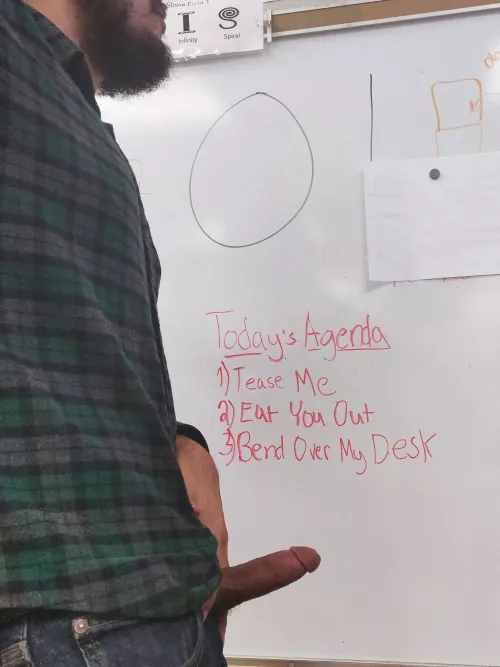 Stone Field's
Infinity Spiral
Today's Agenda
1) Tease Me
2) Eat You Out
3) Bend Over My Desk